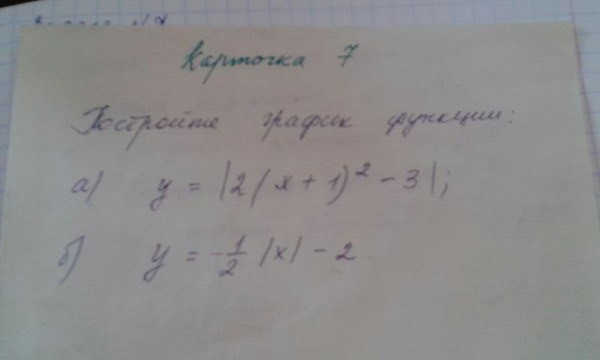 Карточка 7
Постройте график функции:
а) y = |2(x+1)² - 3|;
б) y = -1/2 |x| - 2